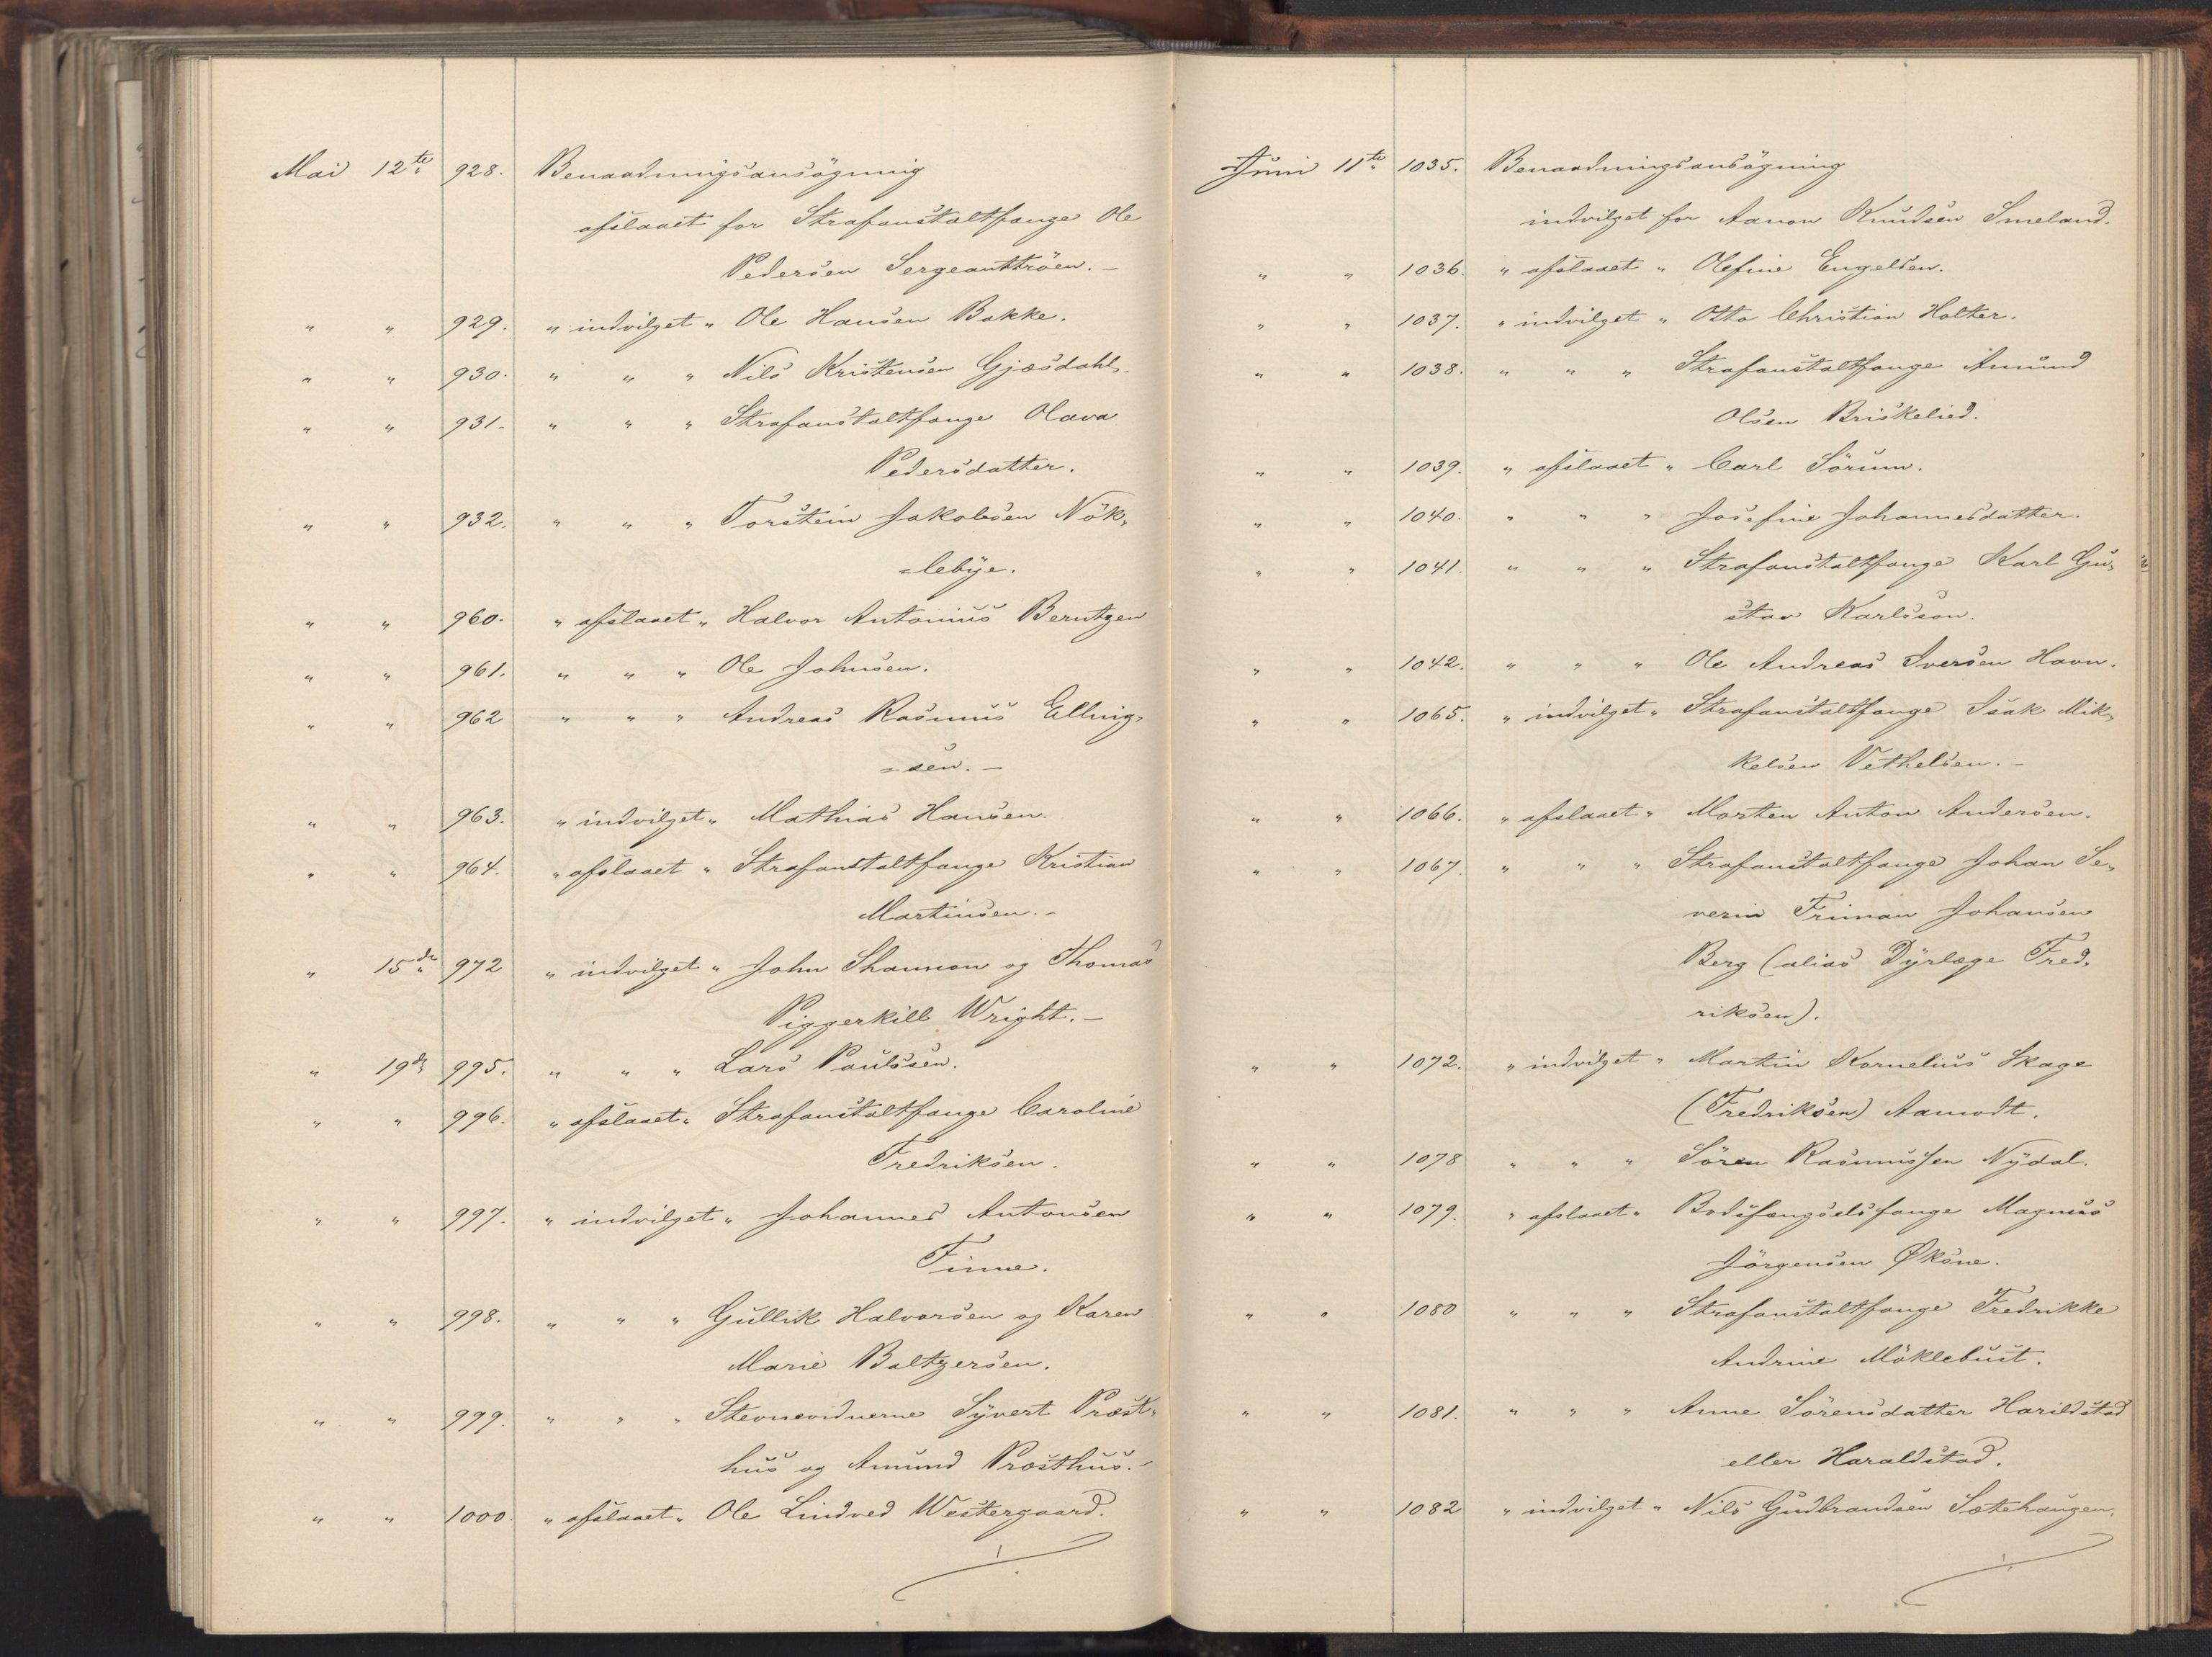 Mai 12te 928. Benaadningsansögning
afslaaet for Strafanstaltfange Ole
Pedersen Sergeanttröen. -
" " 929. " indvilget " Ole Hansen Bakke.
" " 930. " " " Nils Kristensen Gjæsdahl.
" " 931. " " " Strafanstaltfange Olava
Pedersdatter.
" " 932. " " " Torstein Jakobsen Nök=
=lebye.
" " 960. " afslaaet " Halvor Antonius Berntzen
" " 961. " " " Ole Johnsen.
" " 962 " " " Andreas Rasmus Elling=
=sen. -
" " 963. " indvilget " Mathias Hansen.
" " 964. " afslaaet " Strafanstaltfange Kristian
Martinsen. -
" 15de 972 " indvilget " John Shannon og Thomas
Piggerkill Wright. -
" 19de 995. " " " Lars Paulssen.
" " 996. " afslaaet " Strafanstaltfange Caroline
Fredriksen.
" " 997. " indvilget " Johannes Antonsen
Finne.
" " 998. " " " Gullik Halvorsen og Karen
Marie Baltzersen.
" " 999. " " " Stevnevidnerne Syvert Præst=
hus og Amund Præsthus. -
" " 1000. " afslaaet " Ole Lindved Westergaard.
Juni 11te 1035. Benaadningsansögning
indvilget for Aanon Knudsen Smeland.
" " 1036. " afslaaet " Olefine Engelsen.
" " 1037. " indvilget " Otto Christian Holter.
" " 1038. " " " Strafanstaltfange Amund
Olsen Briskelied.
" " 1039. " afslaaet " Carl Sörum.
" " 1040. " " " Josefine Johannesdatter.
" " 1041. " " " Strafanstaltfange Karl Gu=
stav Karlsson.
" " 1042. " " " Ole Andreas Iversen Havn.
" " 1065. " indvilget " Strafanstaltfange Isak Mik=
kelsen Vethelsen. -
" " 1066. " afslaaet " Morten Anton Andersen.
" " 1067. " " " Strafanstaltfange Johan Se=
verin Friman Johansen
Berg (alias Dyrlæge Fred=
riksen).
" " 1072. " indvilget " Martin Kornelius Skage
(Fredriksen) Aamodt.
" " 1078 " " " Sören Rasmussen Nydal.
" " 1079. " afslaaet " Bodsfængselsfange Magnus
Jörgensen Øksne.
" " 1080 " " " Strafanstaltfange Fredrikke
Andrine Möklebust.
" " 1081. " " " Anne Sörensdatter Harildstad
eller Haraldstad.
" " 1082 " indvilget " Nils Gudbrandsen Sætehaugen.